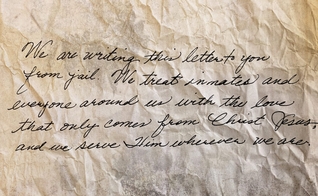 We are writing this letter to you
from jail. We treat inmates and
everyone around us with the love
that only comes from Christ Jesus,
and we serve Him wherever we are.